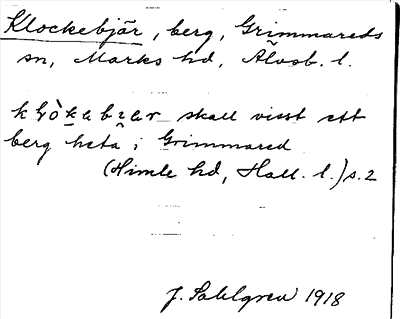 Klockebjär, berg, Grimmareds
sn, Marks hd, Älvsb. l.
skall visst ett
berg heta i Grimmared
(Himle hd, Hall. l.) s. 2
J. Sahlgren 1918